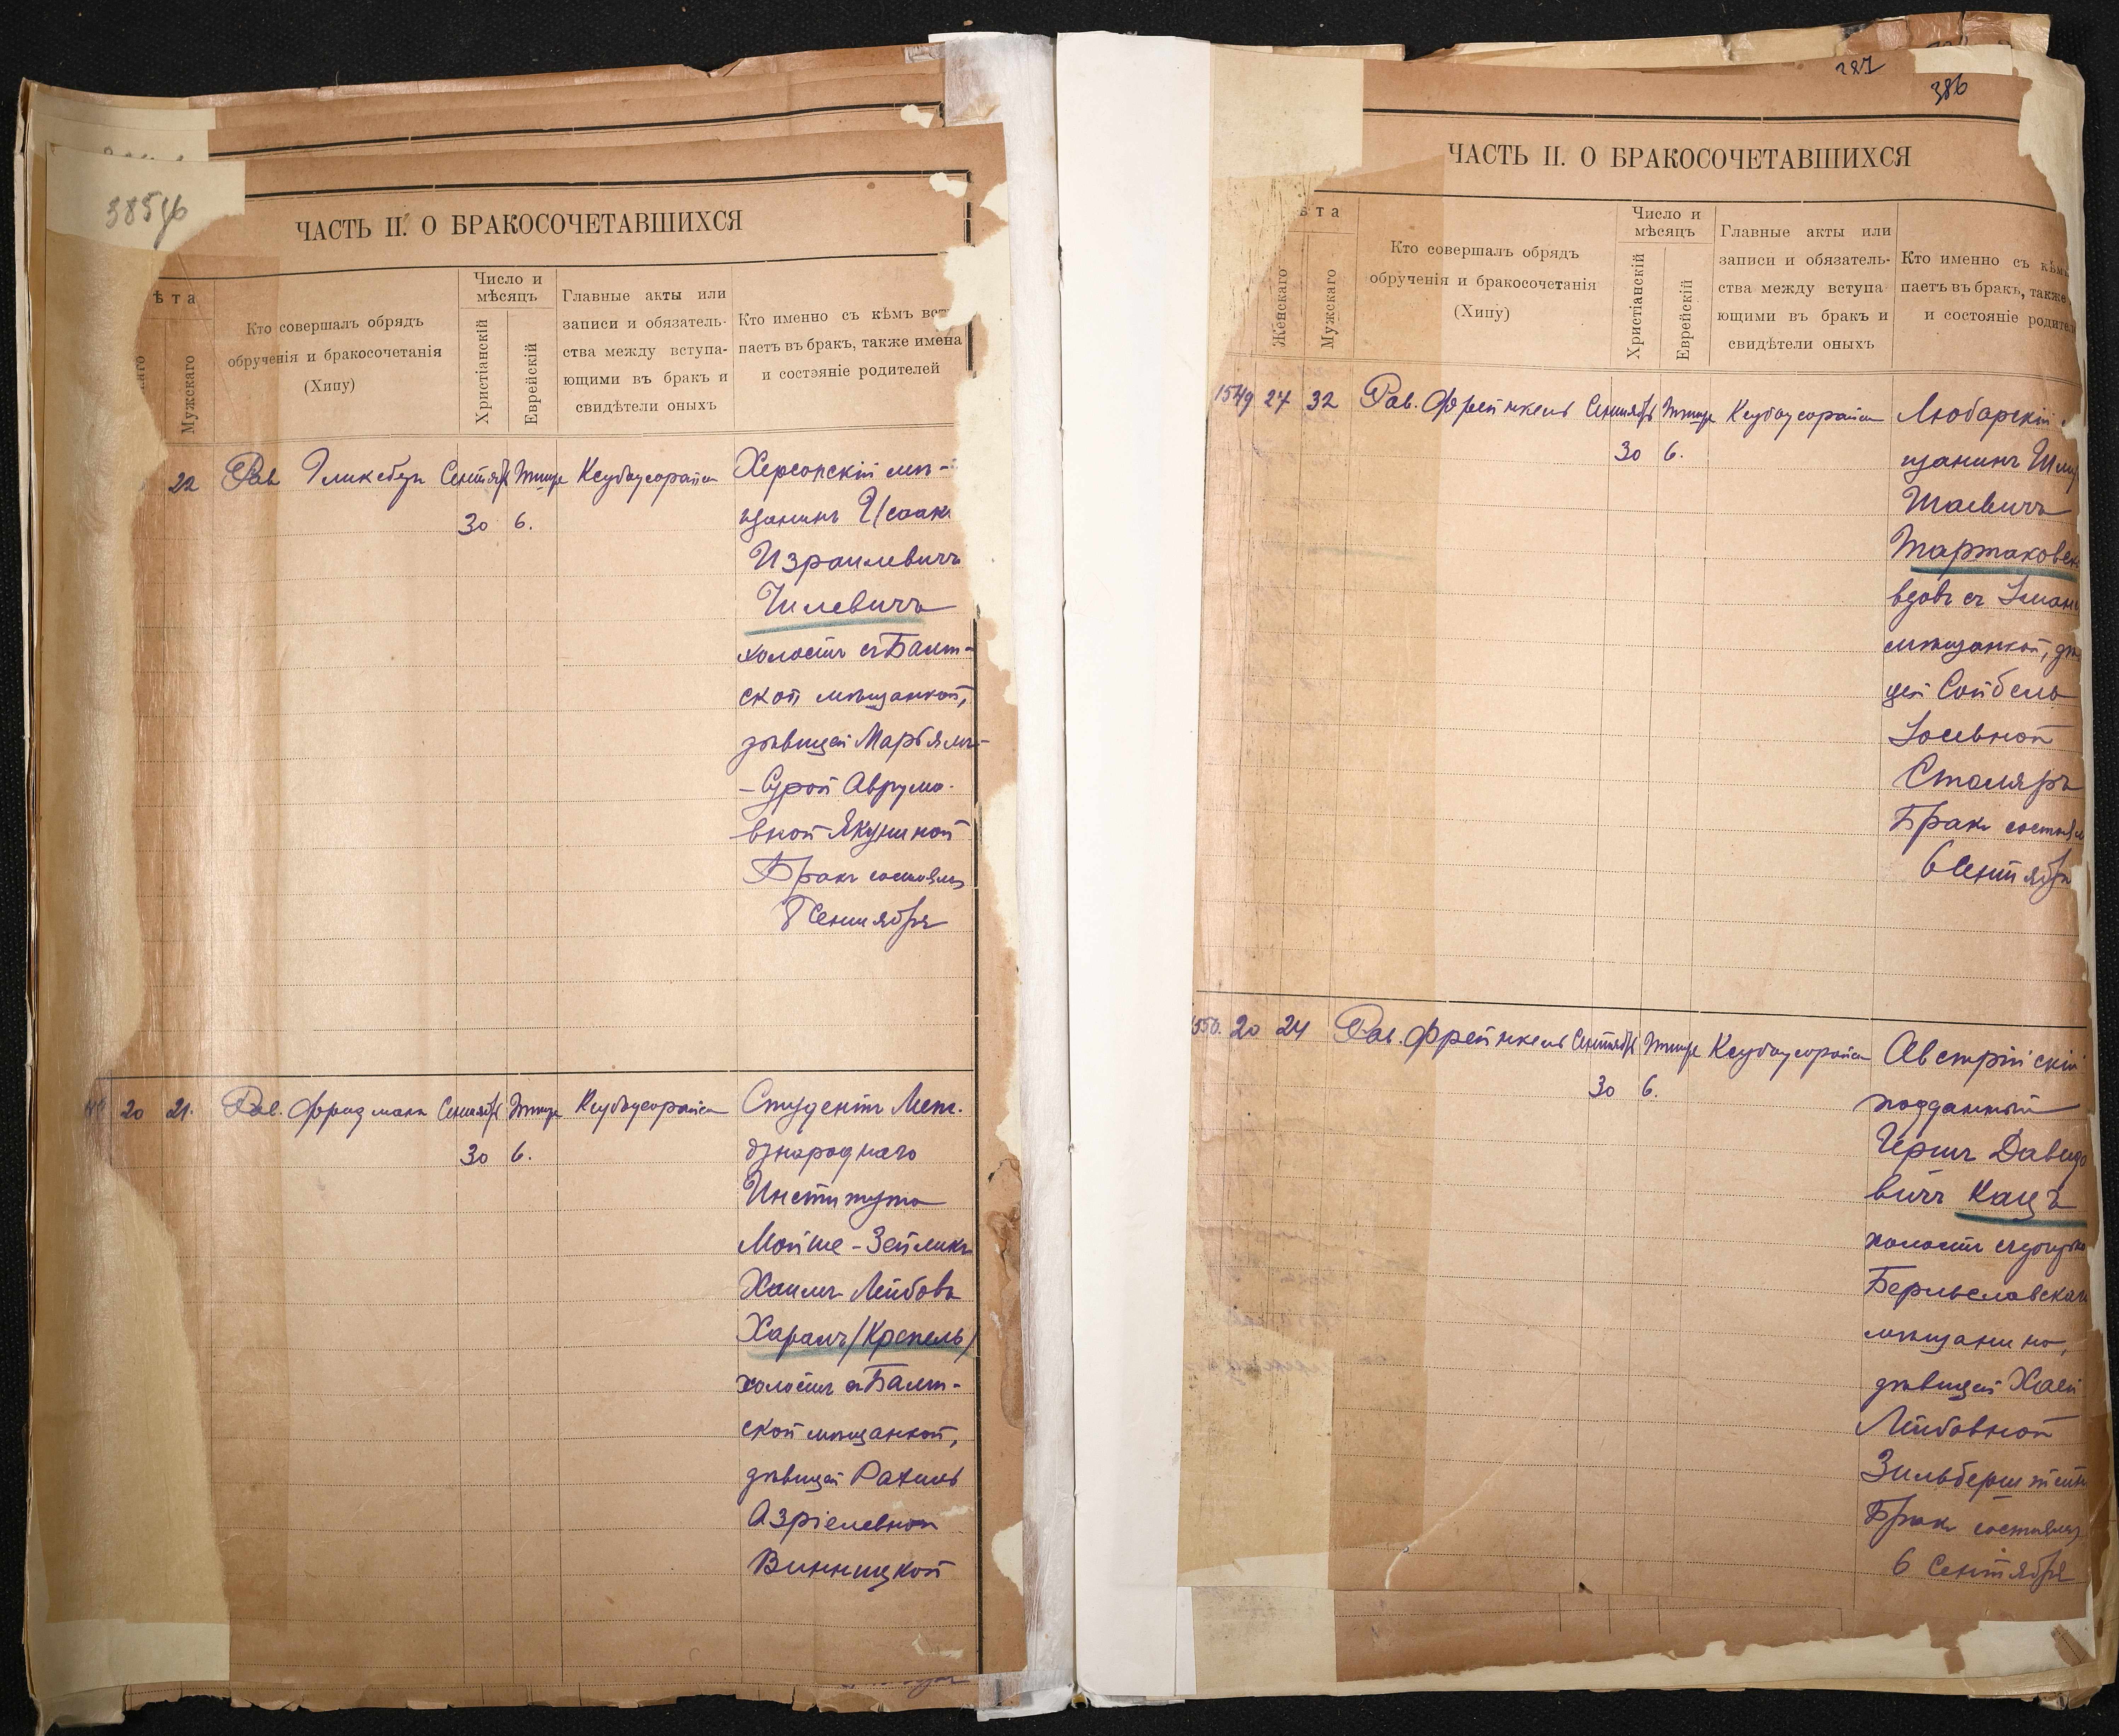 385 об
ЧАСТЬ II. О БРАКОСОЧЕТАВШИХСЯ
ѣта
Мужскаго
Кто совершалъ обрядъ
обрученія и бракосочетанія
(Хипу)
Число и
мѣсяцъ
Христіанскій
Еврейскій
Главные акты или
записи и обязатель-
ства между вступа-
ющими въ бракъ и
свидѣтели оныхъ
Кто именно съ кѣмъ вст
паетъ въ бракъ, также имена
и состояніе родителей
22 Рав Гликсбергъ Сентябр Тишре Ксубаусорайса Херсонскій мѣ-
30 6. щанинъ Исаакъ
Израилевичъ
Чилевичъ
холостъ съ Балт-
ской мѣщанкой,
дѣвицей Марьямъ-
-Сурой Аврумо-
вной Якушной
Бракъ состоялся
8 Сентября
20 21. Рав. Фридманъ Сентябр Тишре Ксубаусорайса Студентъ Меж-
30 6. дународнаго
Института
Мойше-Зейликъ
Хаимъ Лейбовъ
Харамъ/Крепель/
холостъ съ Балт-
ской мѣщанкой,
дѣвицей Рахиль
Азріелевной
Винницкой
287
386
ЧАСТЬ II. О БРАКОСОЧЕТАВШИХСЯ
ѣта
Женскаго
Мужскаго
Кто совершалъ обрядъ
обрученія и бракосочетанія
(Хипу)
Число и
мѣсяцъ
Христіанскій
Еврейскій
Главные акты или
записи и обязатель-
ства между вступа
ющими въ бракъ и
свидѣтели оныхъ
Кто именно съ кѣмъ
паетъ въ бракъ, также
и состояніе родител
1549 27 32 Рав. Фрейнкель Сентябр Тишре Ксубаусорайса Любарскій
30 6. щанинъ Шму
Шаевичъ
Тартаковск
вдовъ съ Уман
мѣщанкой, дѣ
цей Сойбель
Іосевной
Столяръ
Бракъ состоял
6 Сентября
1550. 20 24 Рав. Фрейнкель Сентябр Тишре Ксубаусорайса Австрійскій
30 6. подданный
Гершъ Давидо
вичъ Кацъ
холостъ съ дочерью
Бериславскаго
мѣщанина,
дѣвицей Хаей
Лейбовной
Зильберштейн
Бракъ состоялся
6 Сентября